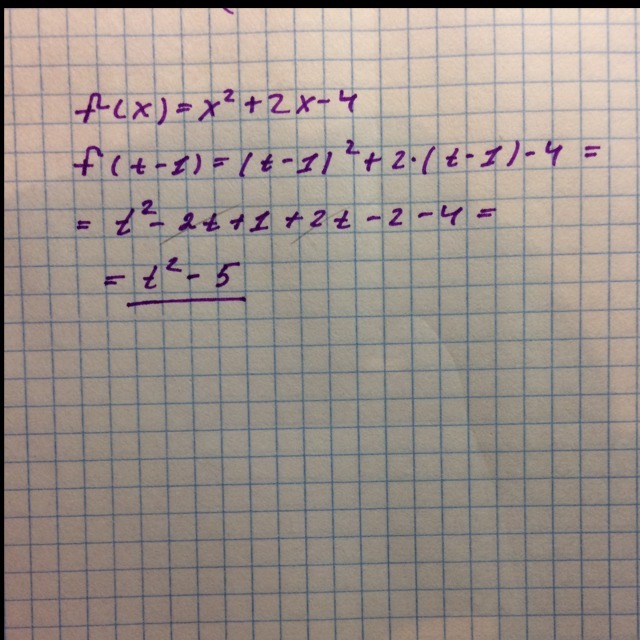 f(x)=x²+2x-4
f(t-1)=(t-1)²+2·(t-1)-4=
= t²-2t+1+2t-2-4=
= t²-5